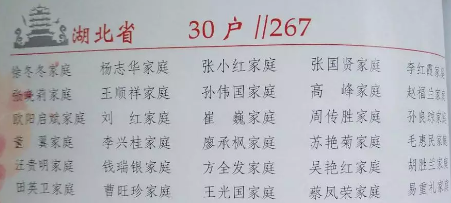 湖北省 30 户 //267
徐冬冬家庭 杨志华家庭 张小红家庭 张国贤家庭 李红霞家庭
张晓莉家庭 王顺祥家庭 孙伟国家庭 高 峰家庭 赵福兰家
欧阳启斌家庭 刘 红家庭 崔 巍家庭 周传胜家庭 孙良球家
翼家庭 李兴桂家庭 廖承枫家庭 苏艳菊家庭 毛惠民家
汪贵明家庭 钱瑞银家庭 方全发家庭 吴艳红家庭 胡胜兰家
田英卫家庭 曹旺珍家庭 王光国家庭 蔡凤荣家庭 易重礼家